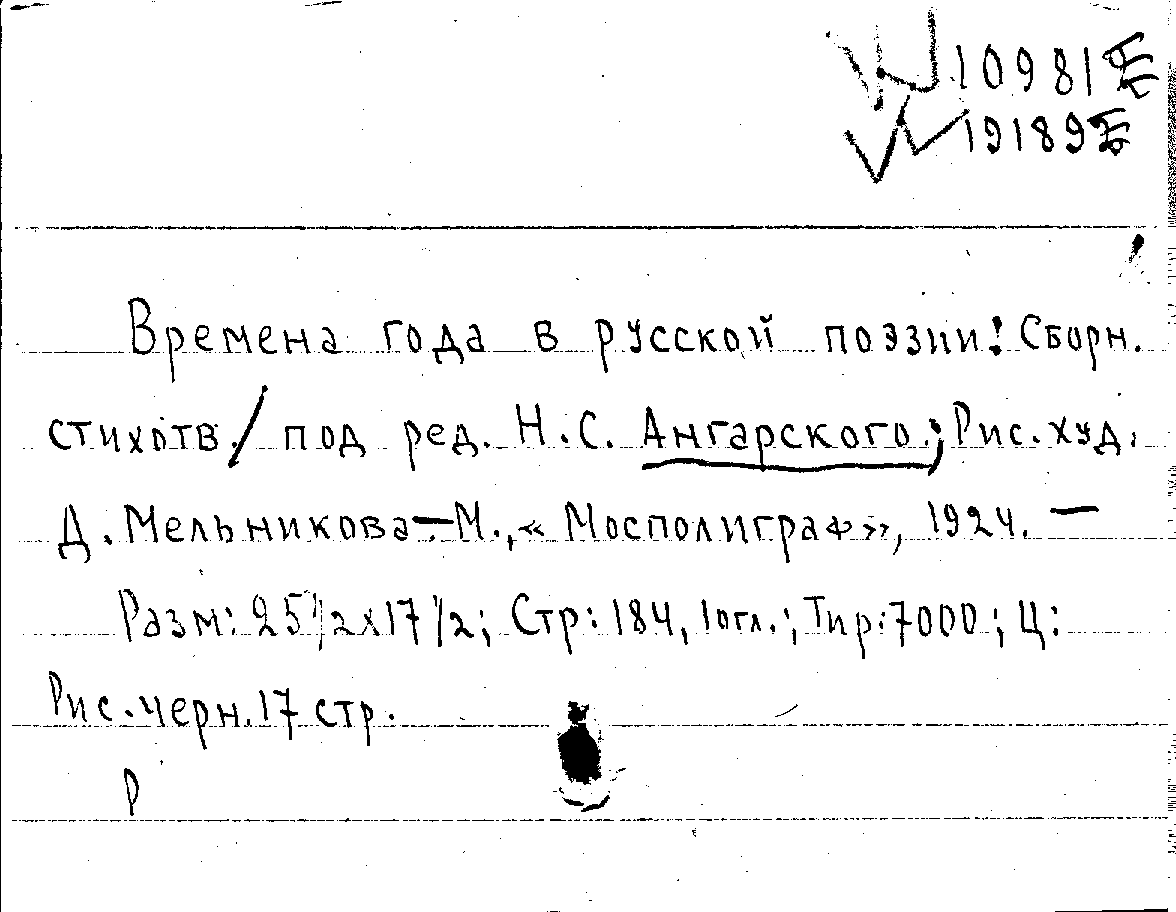 10981
19189
Времена года в русской поэзии: Сборн.
стихотв./ под ред. Н.С. Ангарского; Рис. худ.
Д. Мельникова — М., « Мосполиграф», 1924. —
Разм: 25 1/2 х 17 1/2; Стр: 184, 1 огл.; Тир: 7000; Ц:
Рис. черн. 17 стр.
Р